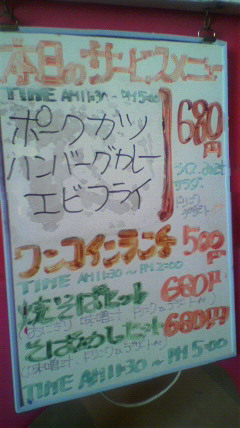 本日のサービスメニュー
TIME AM11:30〜PM5:00
ポークカツ
ハンバーグカレー
エビフライ
680円
ライス、みそ汁
サラダ、
ドリンク
ワンコインランチ 500円
TIME AM11:30〜PM2:00
焼そばセット 680円
(おにぎり 味噌汁 ドリンク デザート付)
そばめしセット 680円
(味噌汁 ドリンク デザート付)
TIME AM11:30〜PM5:00